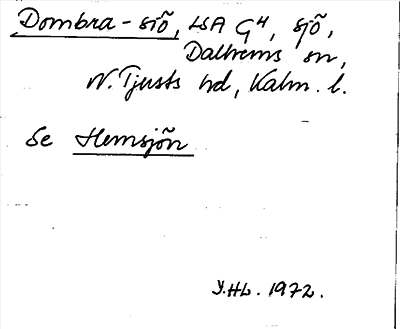 Dombra-sjö, LSA G4, sjö,
Dalhems sn,
N. Tjusts hd, Kalm. l.
Se Hemsjön
Y.HL. 1972.